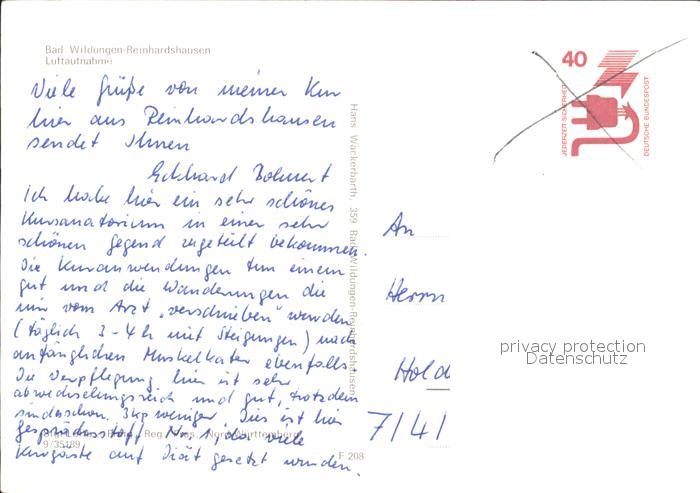 Bad Wildungen-Reinhardshausen
Luftaufnahme
Viele Grüße von meiner Kur
hier aus Reinhardshausen
sendet Ihnen
Eckhard
Ich habe hier ein sehr schönes
Kursanatorium in einer sehr
schönen Gegend zugeteilt bekommen.
Die Kuranwendungen tun einem
gut und die Wanderungen die
mir vom Arzt „verschrieben" wurden
(täglich 3-4 h mit Steigungen) nach
anfänglichen Muskelkater ebenfalls.
Die Verpflegung hier ist sehr
abwechslungsreich und gut, trotzdem
sind schon 3 kg weniger. Dies ist hier
Gesprächsstoff Nr. 1, da viele
Kurgäste auf Diät gesetzt wurden.
9/35189
F 208
Hans Wackerbarth, 359 Bad Wildungen-Reinhardshausen
40
JEDERZEIT SICHERHEIT
DEUTSCHE BUNDESPOST
An
Herrn
Hold
7141
privacy protection
Datenschutz